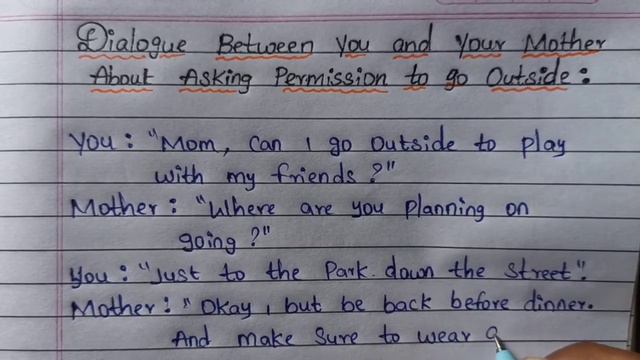 Dialogue Between You and Your Mother
About Asking Permission to go Outside :
You : "Mom, can I go outside to play
with my friends ?"
Mother : "Where are you planning on
going ?"
You : "Just to the Park down the street".
Mother : "Okay, but be back before dinner.
And make sure to wear a